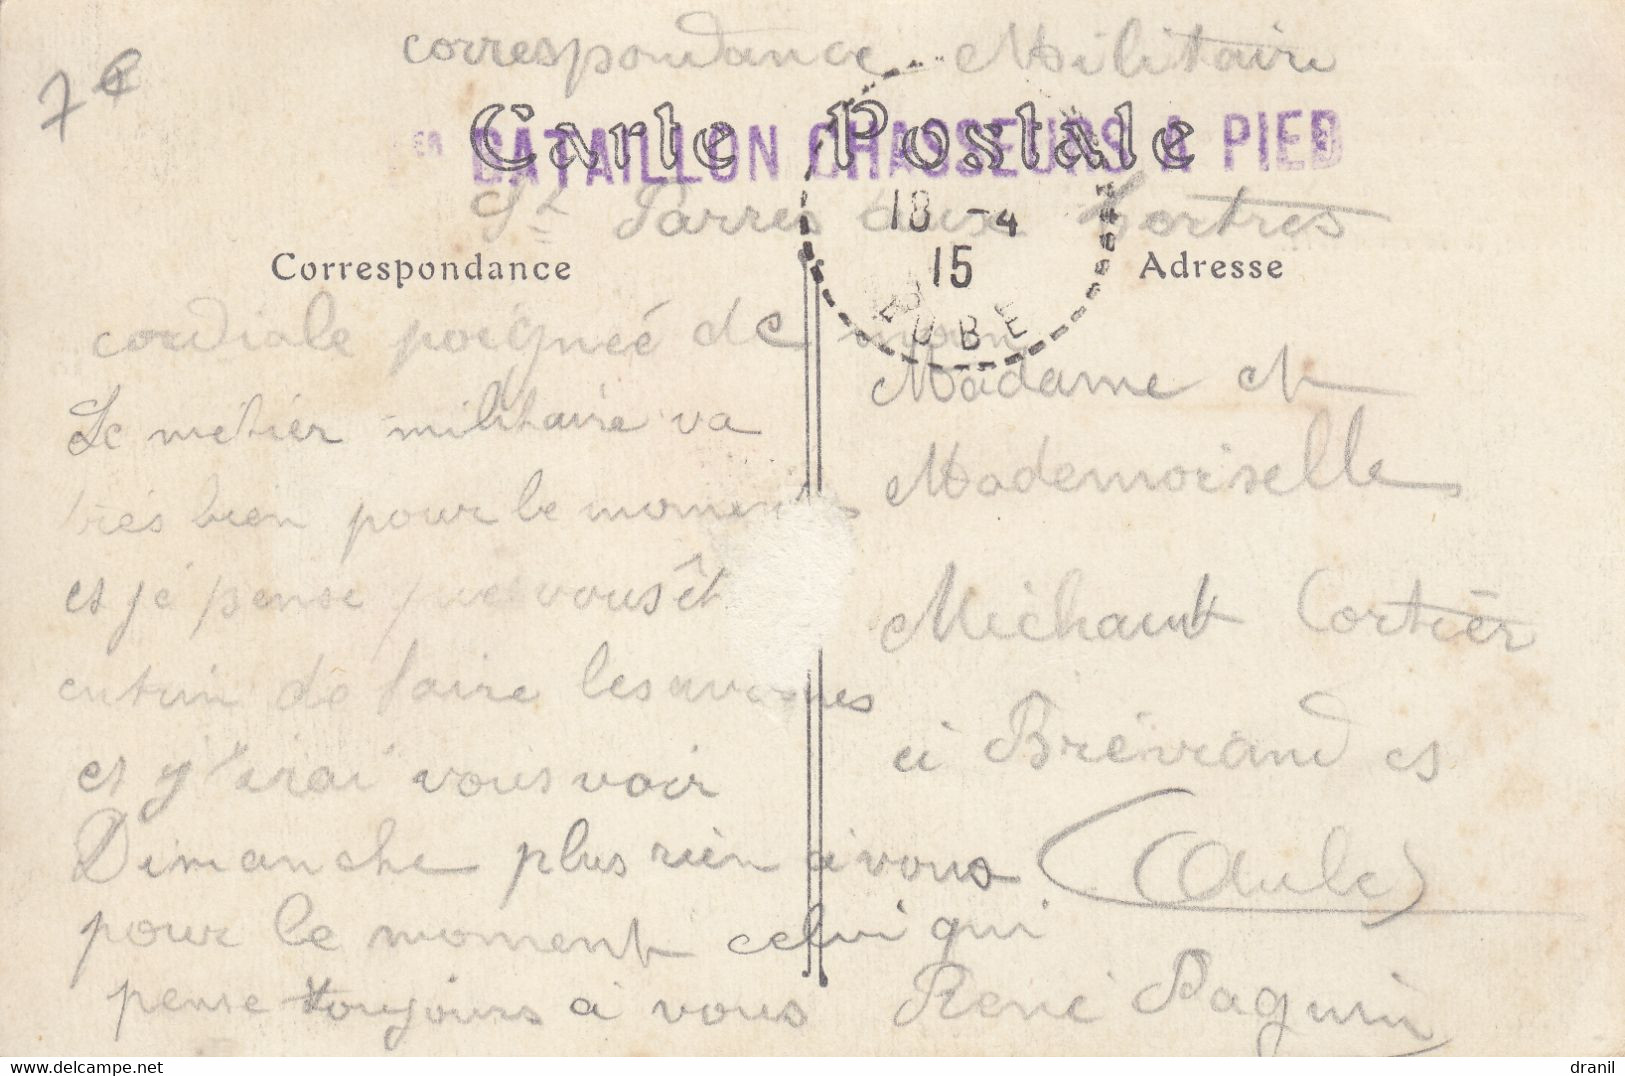 7 €
correspondance Militaire
Carte Postale
ER BATAILLON CHASSEURS A PIED
St Parres aux Tertres
18 -4
15
AUBE
Correspondance
Adresse
cordiale poignée de moin
Le métier militaire va
très bien pour le moment
et je pense que vous êt
entrin de faire les
et j'irai vous voir
Dimanche plus rien à vous
pour le moment celui qui
pense toujours à vous
Madame et
Mademoiselle
Michaut Cortier
à Brévand es
(Aube)
René Paquin
delcampe.net
dranil